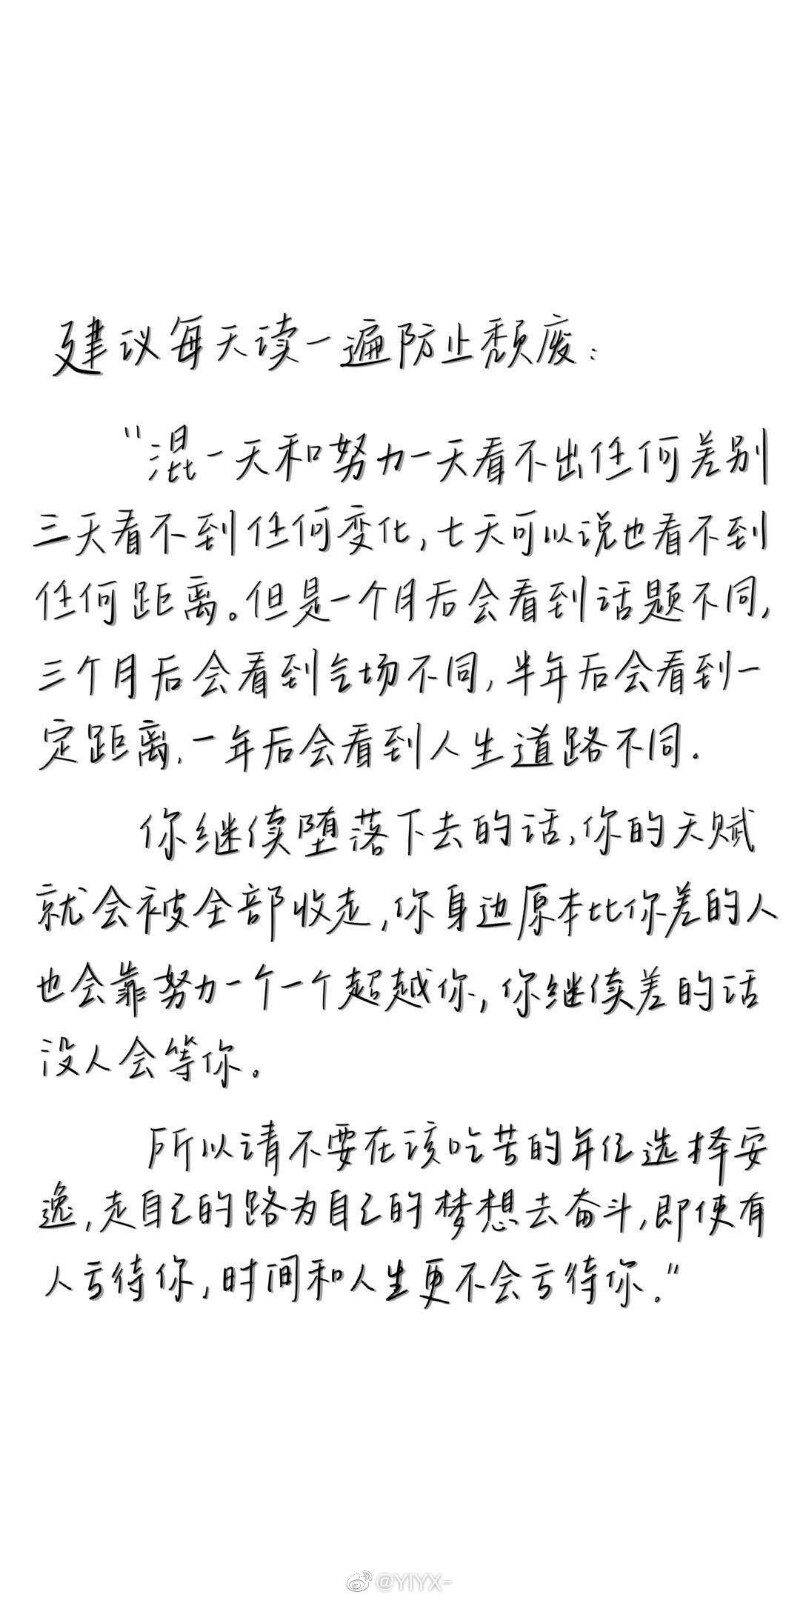 建议每天读一遍防止颓废：
“混一天和努力一天看不出任何差别
三天看不到任何变化，七天可以说也看不到
任何距离。但是一个月后会看到话题不同，
三个月后会看到气场不同，半年后会看到一
定距离，一年后会看到人生道路不同.
你继续堕落下去的话，你的天赋
就会被全部收走，你身边原本比你差的人
也会靠努力一个一个超越你，你继续差的话
没人会等你。
所以请不要在该吃苦的年纪选择安
逸，走自己的路为自己的梦想去奋斗，即使有
人亏待你，时间和人生更不会亏待你.”
@YIYX-